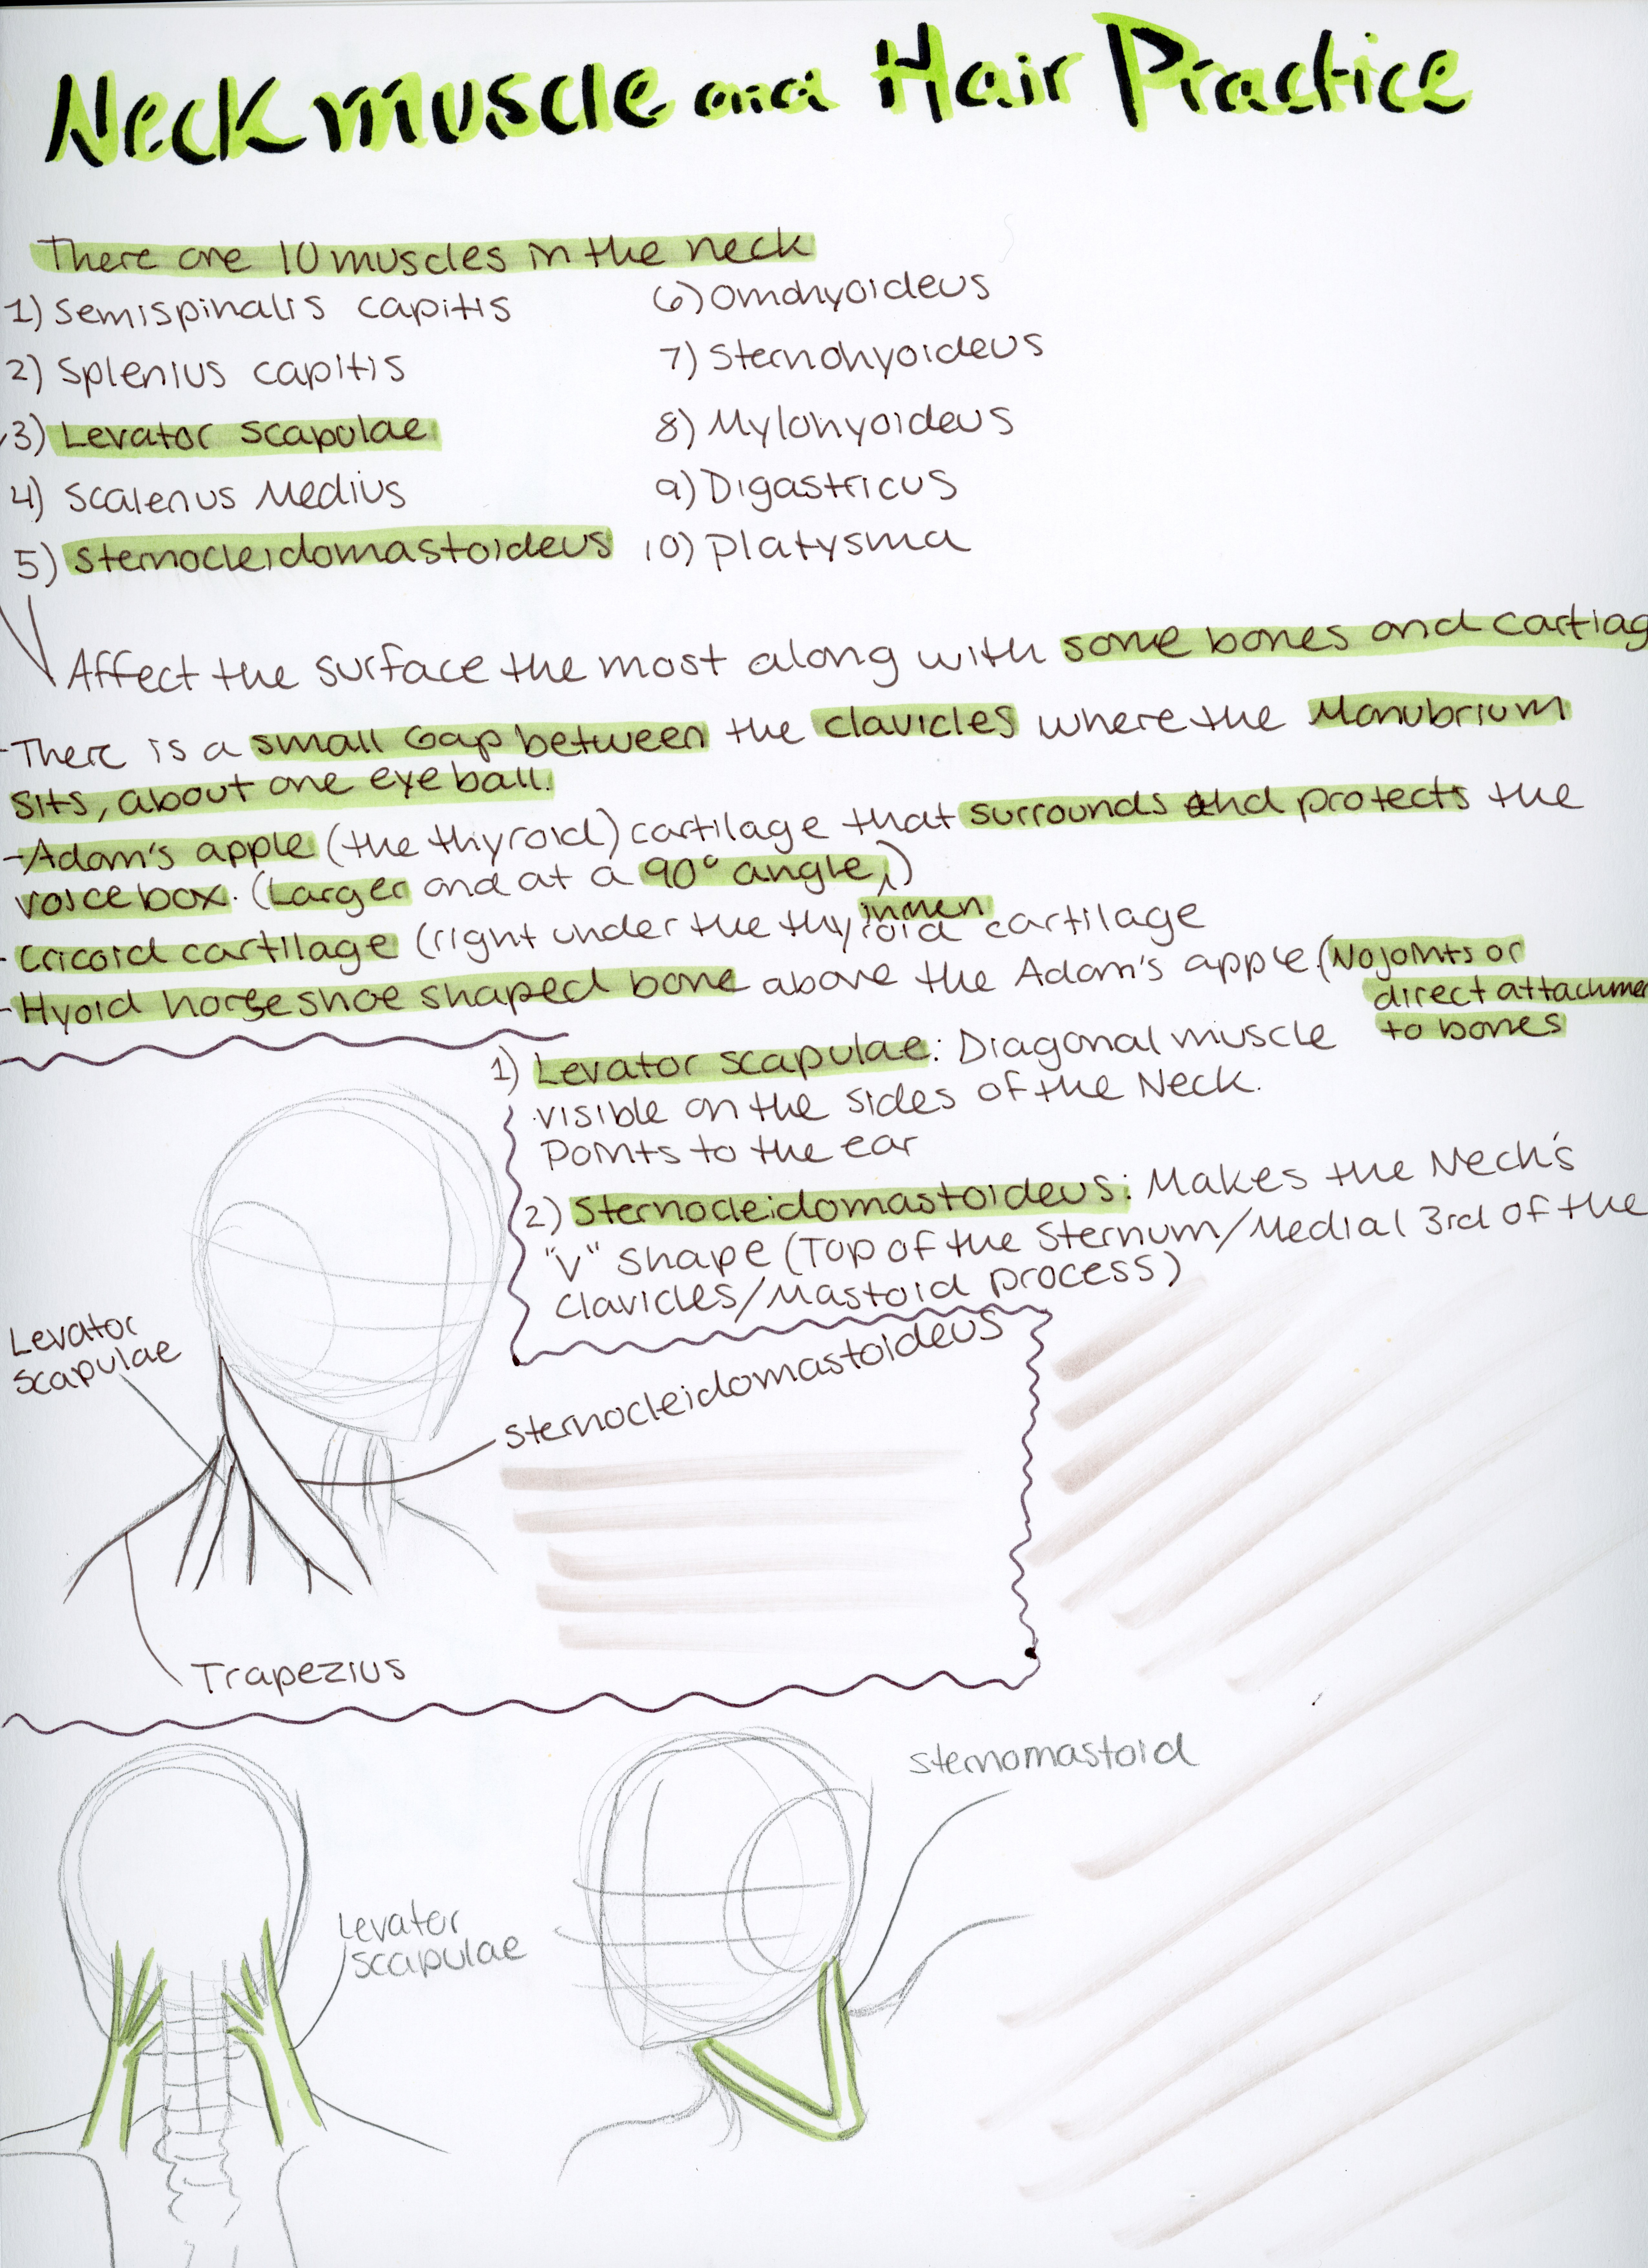 Neck muscle and Hair Practice
There are 10 muscles in the neck
1) Semispinalis capitis
2) Splenius capitis
3) Levator scapulae
4) Scalenus Medius
5) Sternocleidomastoideus
6) Omohyoideus
7) Sternohyoideus
8) Mylohyoideus
9) Digastricus
10) Platysma
Affect the surface the most along with some bones and cartilag
-There is a small Gap between the clavicles where the Manubrium
sits, about one eyeball.
-Adam's apple (the thyroid) cartilage that surrounds and protects the
voicebox. (Larger and at a 90° angle,)
in men
-Cricoid cartilage (right under the thyroid cartilage
-Hyoid horseshoe shaped bone above the Adam's apple. (No joints or
direct attachmen
to bones
1) Levator scapulae: Diagonal muscle
visible on the sides of the Neck.
Points to the ear
2) Sternocleidomastoideus: Makes the Neck's
"V" shape (Top of the Sternum/Medial 3rd of the
clavicles/Mastoid process)
Levator
scapulae
Sternocleidomastoideus
Trapezius
Sternomastoid
Levator
scapulae